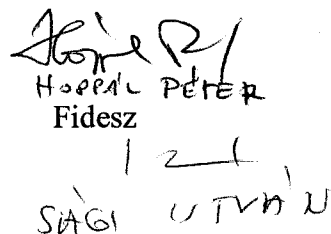 HOPPÁL PÉTER
Fidesz
SÁGI ISTVÁN